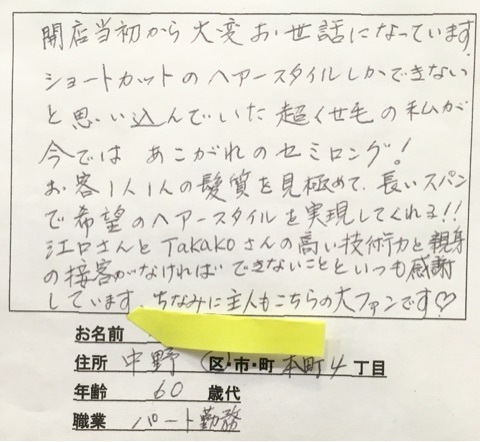 開店当初から大変お世話になっています。
ショートカットのヘアースタイルしかできない
と思い込んでいた超くせ毛の私が
今では あこがれのセミロング!
お客1人1人の髪質を見極めて、長いスパン
で希望のヘアースタイルを実現してくれる!!
江口さんとTakakoさんの高い技術力と親身
の接客がなければできないことといつも感謝
しています。ちなみに主人もこちらの大ファンです♡
お名前
住所 中野 区・市・町 本町4 丁目
年齢 60 歳代
職業 パート勤務